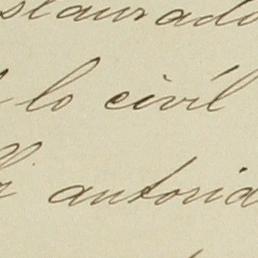 staurado
lo civíl
autorida